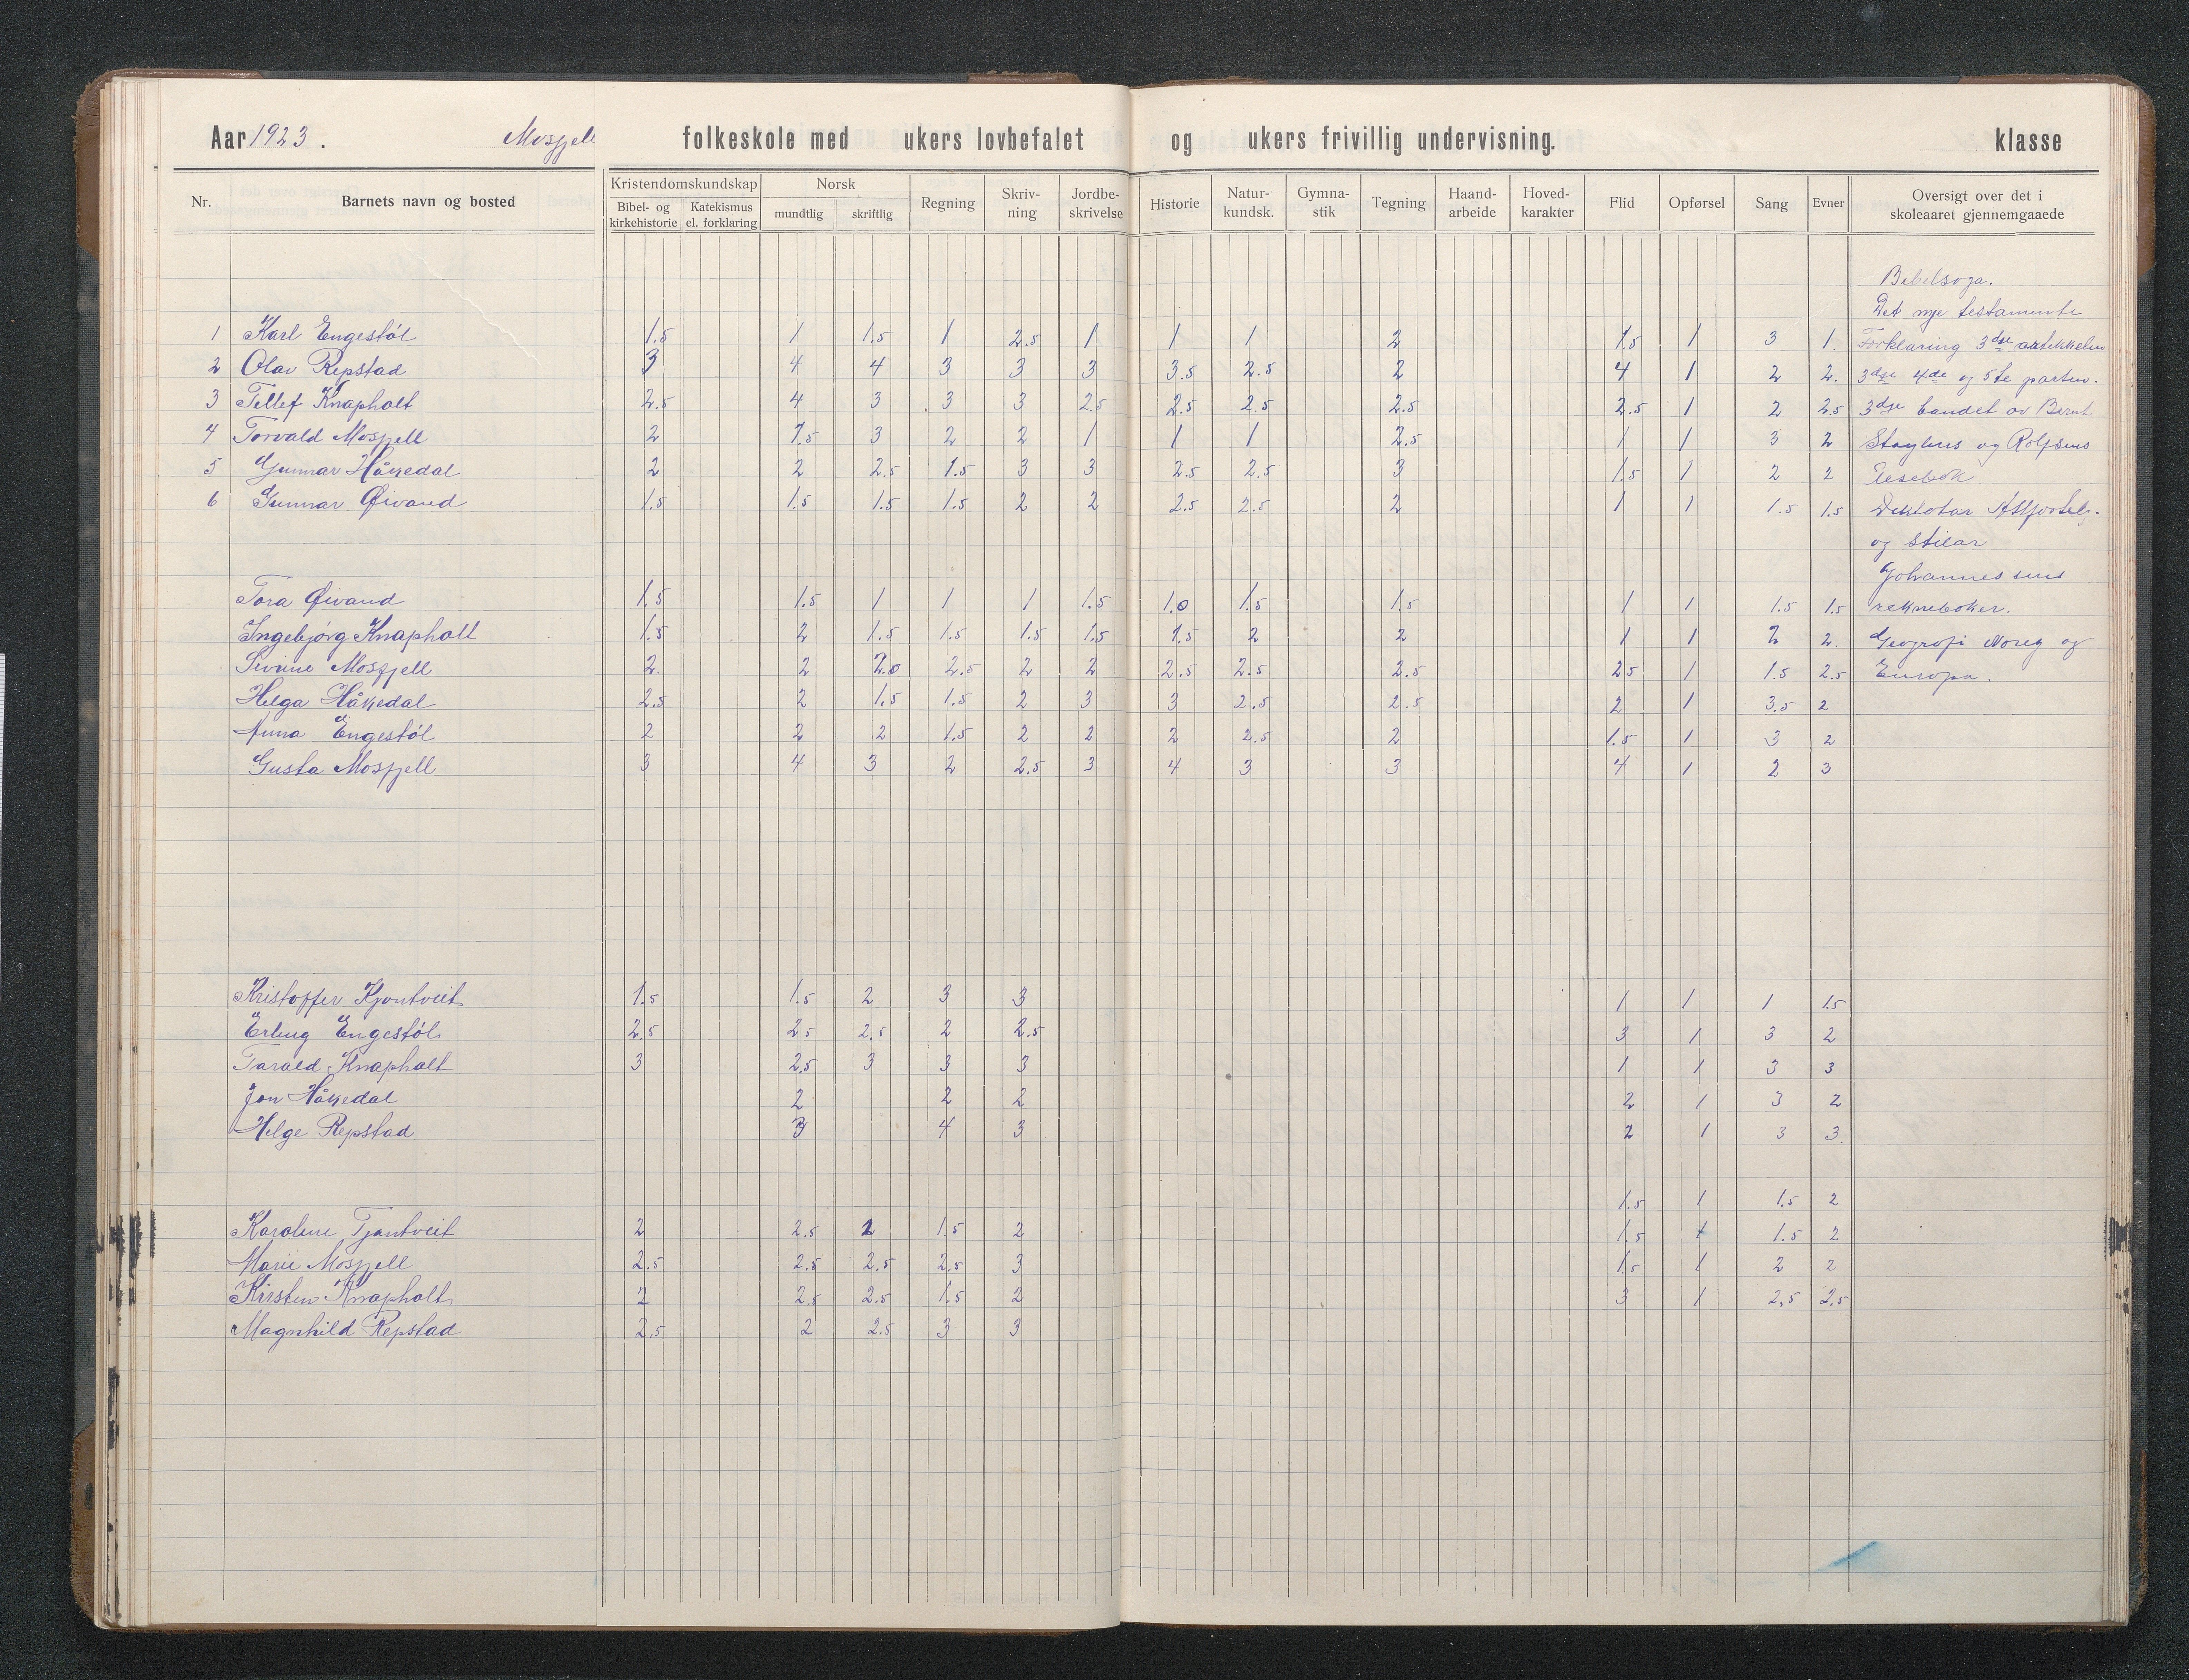 Aar 1923. Mosfjell folkeskole med ukers lovbefalet og ukers frivillig undervisning. klasse
Nr. Barnets navn og bosted Kristendomskundskap Bibel- og kirkehistorie Katekismus el. forklaring Norsk mundtlig skriftlig Regning Skriv-ning Jordbe-skrivelse Historie Natur-kundsk. Gymna-stik Tegning Haand-arbeide Hoved-karakter Flid Opførsel Sang Evner Oversigt over det i skoleaaret gjennemgaaede
Bibelsoga.
Det nye testamente
1 Karl Engestøl 1.5 1 1.5 1 2.5 1 1 1 2 1.5 1 3 1. Forklaring 3dje artikkelen
2 Olav Repstad 3 4 4 3 3 3 3.5 2.5 2 4 1 2 2. 3dje 4de og 5te parten.
3 Tellef Knapholt 2.5 4 3 3 3 2.5 2.5 2.5 2.5 2.5 1 2 2.5 3dje bandet av Bernt
4 Torvald Mosfjell 2 1.5 3 2 2 1 1 1 2.5 1 1 3 2 Støylens og Rolfsens
5 Gunnar Håkedal 2 2 2.5 1.5 3 3 2.5 2.5 3 1.5 1 2 2 Lesebok
6 Gunnar Øivand 1.5 1.5 1.5 1.5 2 2 2.5 2.5 2 1 1 1.5 1.5 Diktatar
og Stilar
Johannessens
Tora Øivand 1.5 1.5 1 1 1 1.5 1.0 1.5 1.5 1 1 1.5 1.5 reknebøker.
Ingebjørg Knapholt 1.5 2 1.5 1.5 1.5 1.5 1.5 2 2 1 1 2 2. Geografi Noreg og
Sivrine Mosfjell 2. 2 2.0 2.5 2 2 2.5 2.5 2.5 2.5 1 1.5 2.5 Europa.
Helga Håkedal 2.5 2 1.5 1.5 2 3 3 2.5 2.5 2 1 3.5 2
Anna Engestøl 2 2 2 1.5 2 2 2 2.5 2 1.5 1 3 2
Gusta Mosfjell 3 4 3 2 2.5 3 4 3 3 4 1 2 3
Kristoffer Kjontveit 1.5 1.5 2 3 3 1 1 1 1.5
Erling Engestøl 2.5 2.5 2.5 2 2.5 3 1 3 2
Tarald Knapholt 3 2.5 3 3 3 1 1 3 3
Jon Håkedal 2 2 2 2 1 3 2
Helge Repstad 3 4 3 2 1 3 3.
1.5 1 1.5 2
Karoline Tjontveit 2 2.5 2 1.5 2 1.5 1 1.5 2
Marie Mosfjell 2.5 2.5 2.5 2.5 3 1.5 1 2 2
Kirsten Knapholt 2 2.5 2.5 1.5 2 3 1 2.5 2.5
Magnhild Repstad 2.5 2 2.5 3 3